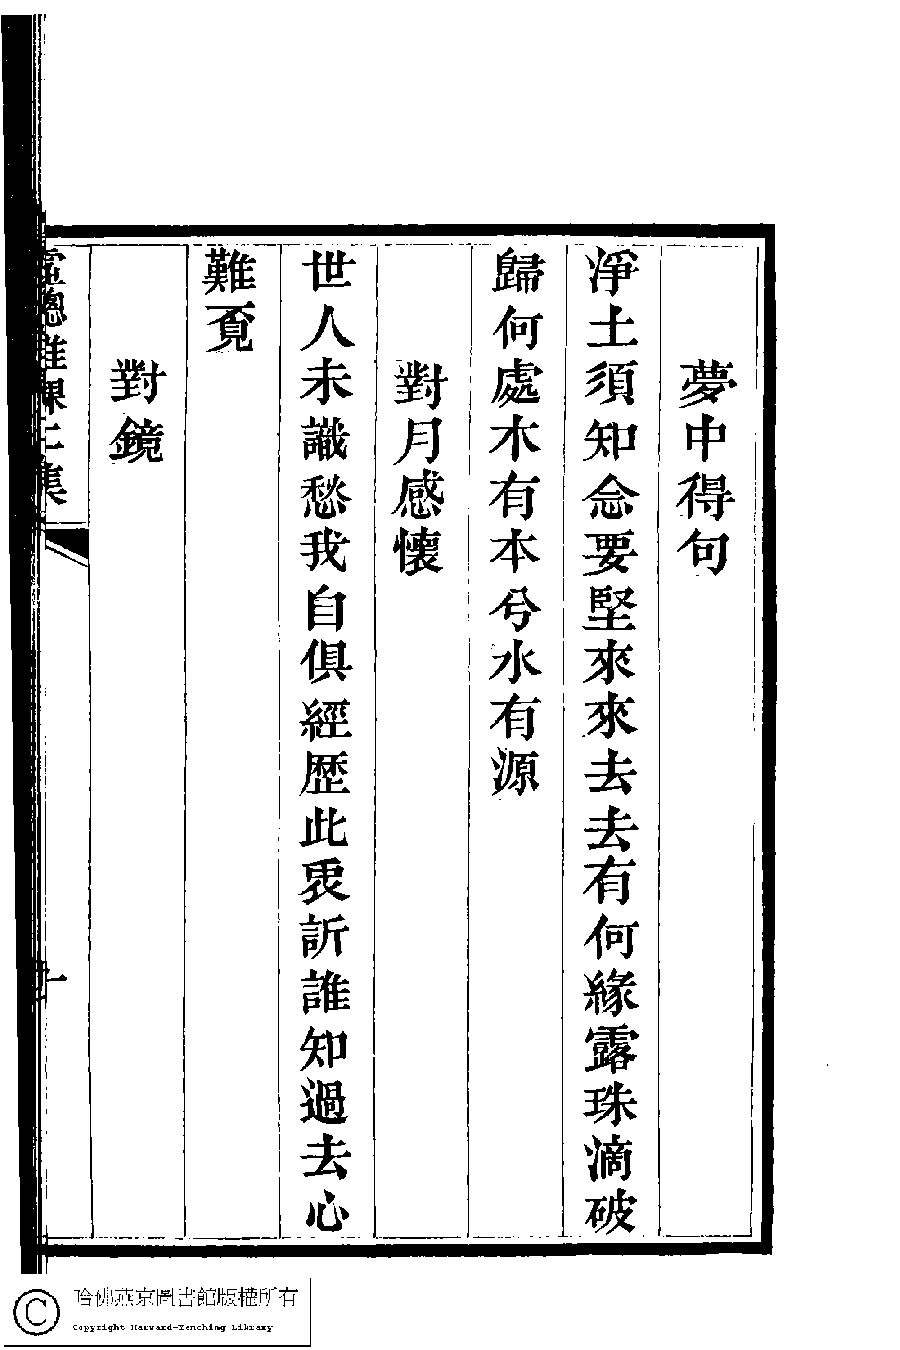 夢中得句
淨土須知念要堅來來去去有何緣露珠滴破
歸何處木有本兮水有源
對月感懷
世人未識愁我自俱經歴此衷訴誰知過去心
難覔
對鏡
虛牕雅課二集
哈佛燕京圖書館版權所有
Copyright Harvard-Yenching Library